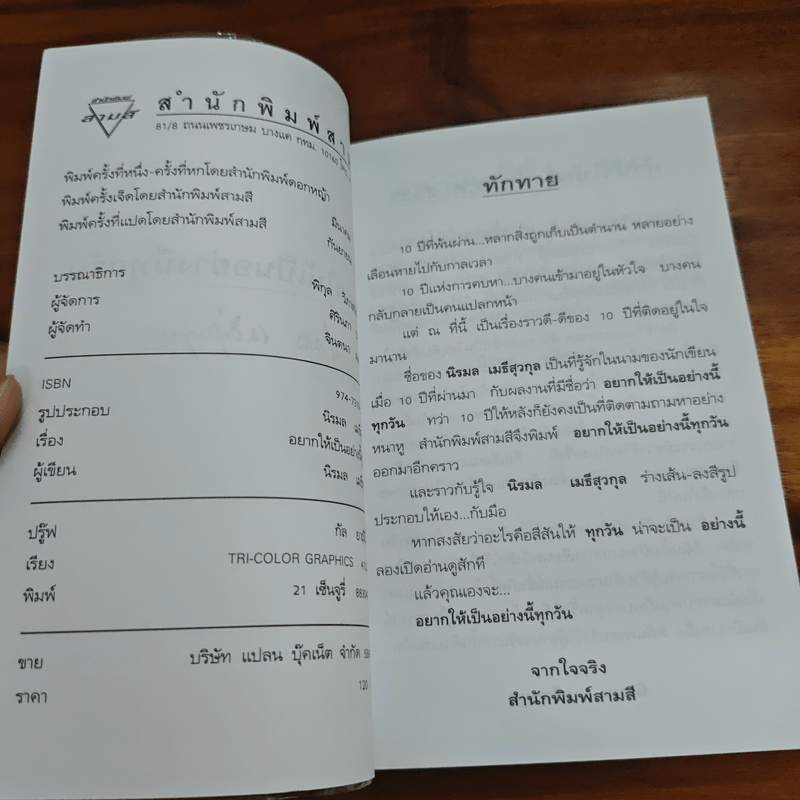 สำนักพิมพ์
สามสี
สำนักพิมพ์สา
81/8 ถนนเพชรเกษม บางแค กทม. 10160
พิมพ์ครั้งที่หนึ่ง-ครั้งที่หกโดยสำนักพิมพ์ดอกหญ้า
พิมพ์ครั้งเจ็ดโดยสำนักพิมพ์สามสี
พิมพ์ครั้งที่แปดโดยสำนักพิมพ์สามสี
บรรณาธิการ พิกุล
ผู้จัดการ ศิรินภา
ผู้จัดทำ จินตนา
ISBN 974-7
รูปประกอบ นิรมล
เรื่อง อยากให้เป็นอย่างนี้
ผู้เขียน นิรมล
ปรู๊ฟ กัล
เรียง TRI-COLOR GRAPHICS
พิมพ์ 21 เซ็นจูรี่
ขาย บริษัท แปลน บุ๊คเน็ต จำกัด
ราคา 120
ทักทาย
10 ปีที่พ้นผ่าน...หลากสิ่งถูกเก็บเป็นตำนาน หลายอย่าง
เลือนหายไปกับกาลเวลา
10 ปีแห่งการคบหา...บางคนเข้ามาอยู่ในหัวใจ บางคน
กลับกลายเป็นคนแปลกหน้า
แต่ ณ ที่นี้ เป็นเรื่องราวดี-ดีของ 10 ปีที่ติดอยู่ในใจ
มานาน
ชื่อของ นิรมล เมธีสุวกุล เป็นที่รู้จักในนามของนักเขียน
เมื่อ 10 ปีที่ผ่านมา กับผลงานที่มีชื่อว่า อยากให้เป็นอย่างนี้
ทุกวัน ทว่า 10 ปีให้หลังก็ยังคงเป็นที่ติดตามถามหาอย่าง
หนาหู สำนักพิมพ์สามสีจึงพิมพ์ อยากให้เป็นอย่างนี้ทุกวัน
ออกมาอีกคราว
และราวกับรู้ใจ นิรมล เมธีสุวกุล ร่างเส้น-ลงสีรูป
ประกอบให้เอง...กับมือ
หากสงสัยว่าอะไรคือสีสันให้ ทุกวัน น่าจะเป็น อย่างนี้
ลองเปิดอ่านดูสักที
แล้วคุณเองจะ...
อยากให้เป็นอย่างนี้ทุกวัน
จากใจจริง
สำนักพิมพ์สามสี